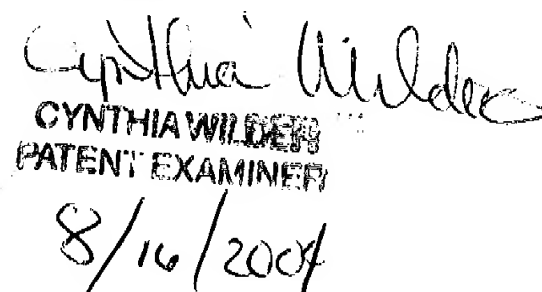 Cynthia Wilder
CYNTHIA WILDER
PATENT EXAMINER
8/16/2004